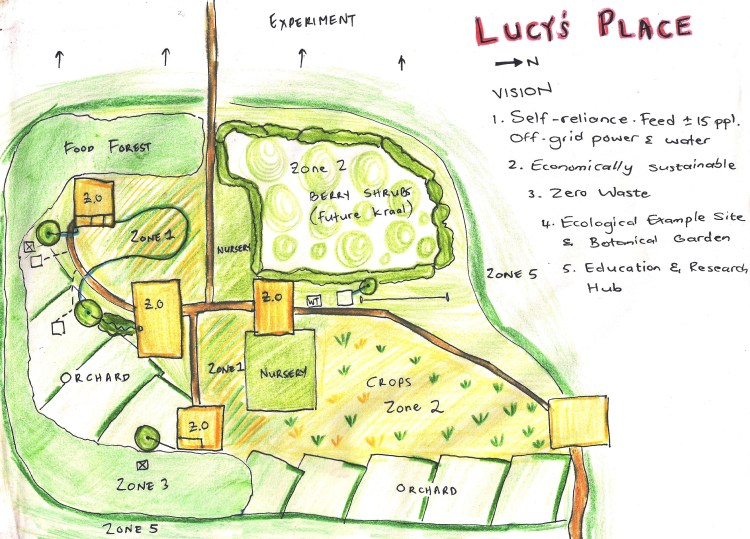 EXPERIMENT
LUCY'S PLACE
N
VISION
1. Self-reliance. Feed ± 15 ppl.
Off-grid power & water
2. Economically sustainable
3. Zero Waste
4. Ecological Example Site
& Botanical Garden
5. Education & Research
Hub
FOOD FOREST
Zone 2
BERRY SHRUBS
(future kraal)
Z.O
ZONE 1
NURSERY
ZONE 5
Z.O
Z.O
WT
ZONE 1
NURSERY
CROPS
Zone 2
ORCHARD
Z.O
ZONE 3
ORCHARD
ZONE 5